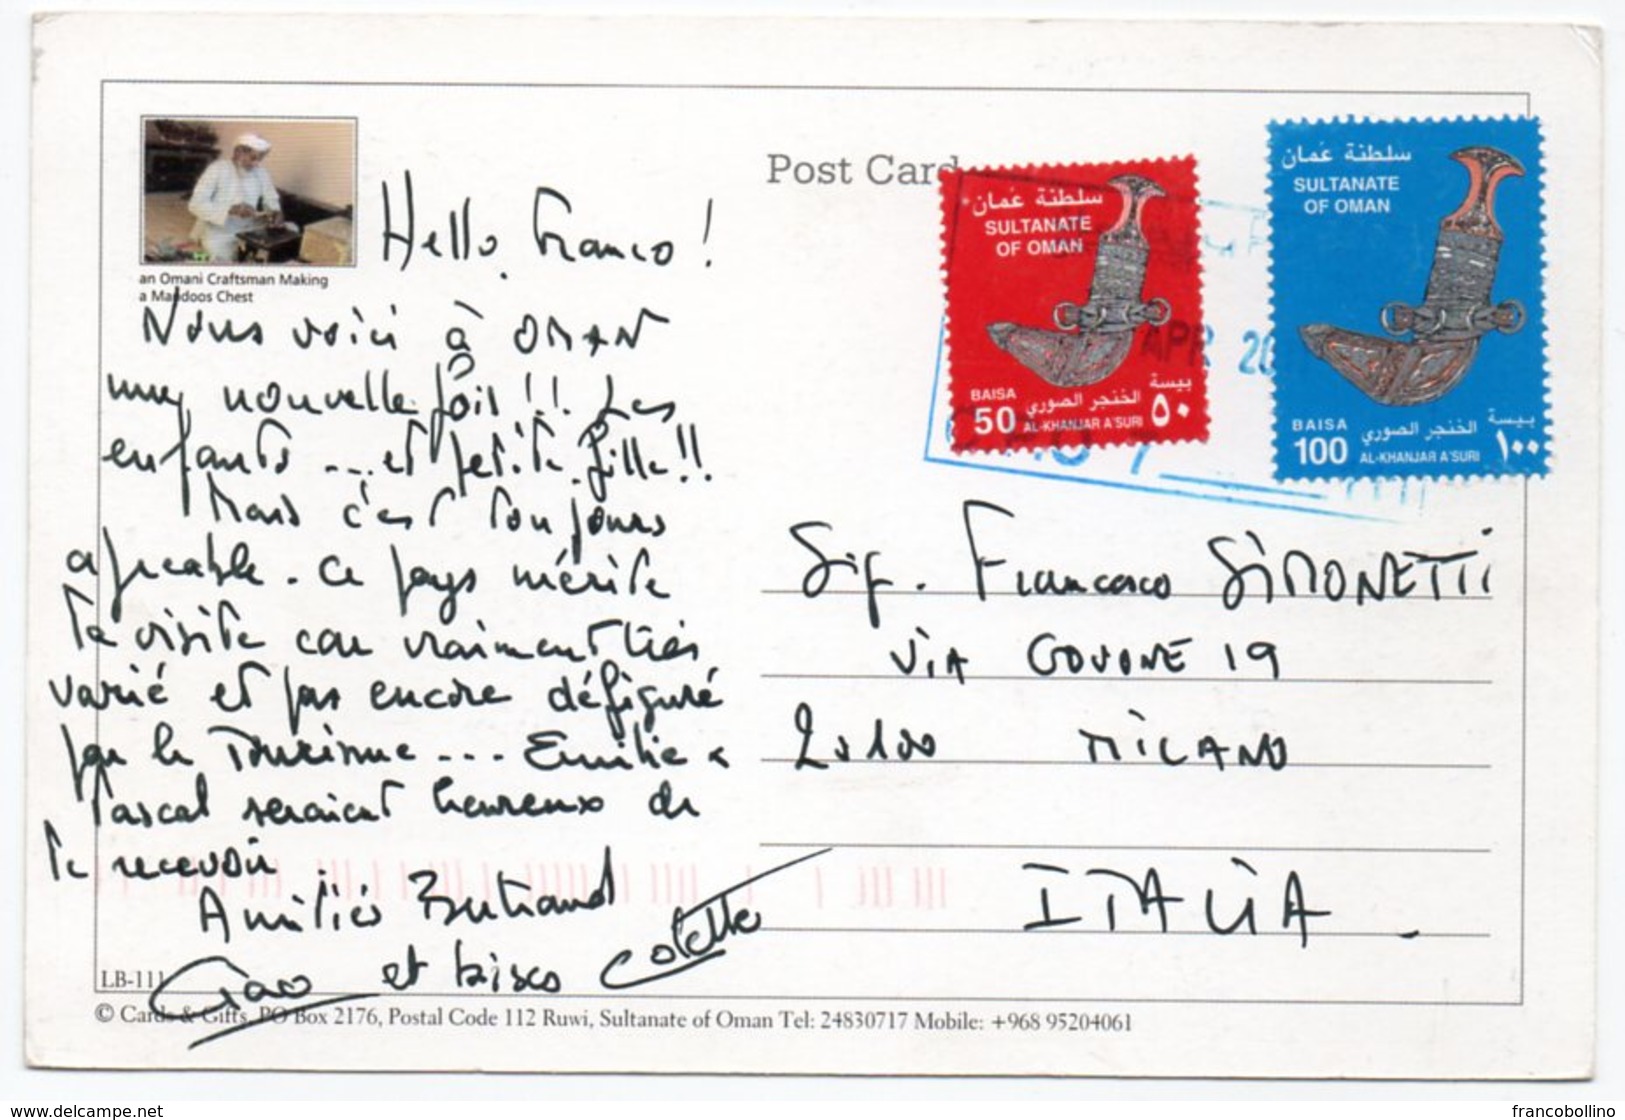 Post Card
an Omani Craftsman Making
a Mandoos Chest
Hello Franco !
Nous voici à OMAN
une nouvelle fois !! Les
enfants ... et petite fille !!
Mais c'est toujours
agréable. Ce pays mérite
ta visite car vraiment très
varié et pas encore défiguré
par le Tourisme ... Emilie &
Pascal seraient heureux de
te recevoir
Amitiés Bertrand
Ciao et bises Colette
سلطنة عمان
SULTANATE
OF OMAN
BAISA
50
بيسة
٥٠
الخنجر الصوري
AL-KHANJAR A'SURI
سلطنة عمان
SULTANATE
OF OMAN
BAISA
100
بيسة
١٠٠
الخنجر الصوري
AL-KHANJAR A'SURI
APR 20
Sig. Francesco SIMONETTI
VIA GOVONE 19
20100 MILANO
ITALIA.
LB-111
© Cards & Gifts, PO Box 2176, Postal Code 112 Ruwi, Sultanate of Oman Tel: 24830717 Mobile: +968 95204061
www.delcampe.net
francobollino